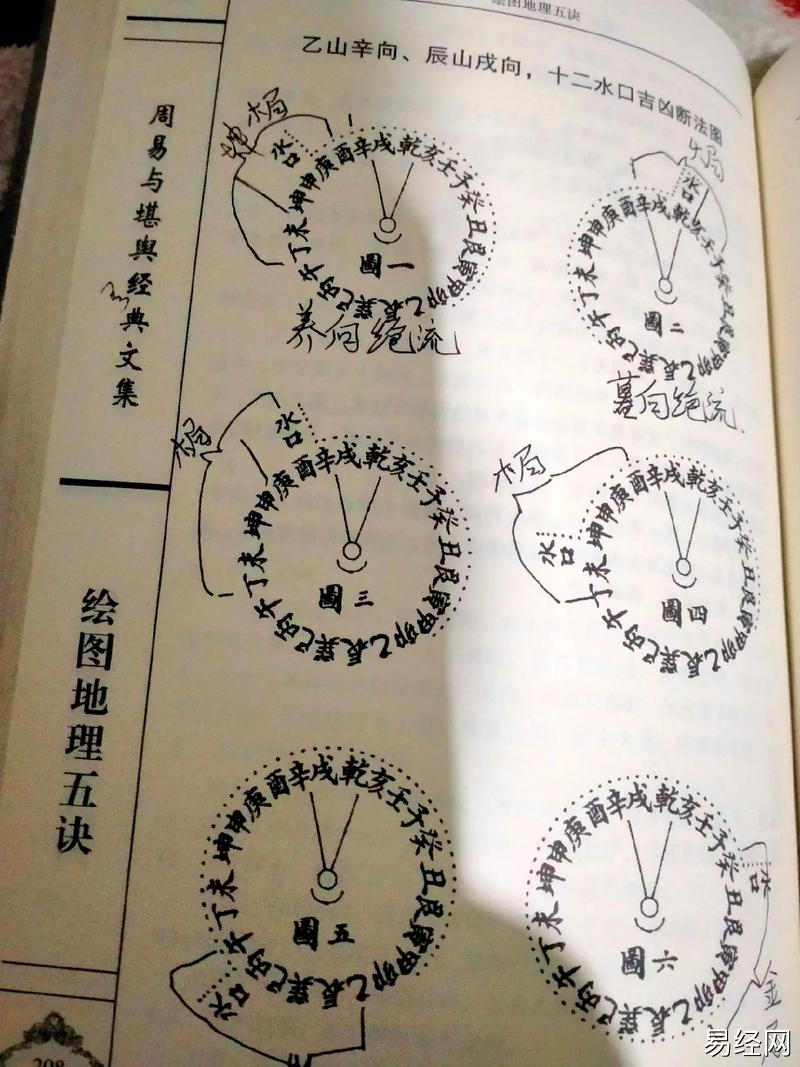 绘图地理五诀
乙山辛向、辰山戌向，十二水口吉凶断法图
周易与堪舆经典文集
绘图地理五诀
208
木局
水口
坤申庚酉辛戌乾亥壬子癸丑艮寅甲卯乙辰巽巳丙午丁未
圖一
养向绝流
水口
坤申庚酉辛戌乾亥壬子癸丑艮寅甲卯乙辰巽巳丙午丁未
圖二
墓向绝流
木局
水口
坤申庚酉辛戌乾亥壬子癸丑艮寅甲卯乙辰巽巳丙午丁未
圖三
木局
水口
坤申庚酉辛戌乾亥壬子癸丑艮寅甲卯乙辰巽巳丙午丁未
圖四
水口
坤申庚酉辛戌乾亥壬子癸丑艮寅甲卯乙辰巽巳丙午丁未
圖五
水口
坤申庚酉辛戌乾亥壬子癸丑艮寅甲卯乙辰巽巳丙午丁未
圖六
金局
易经网